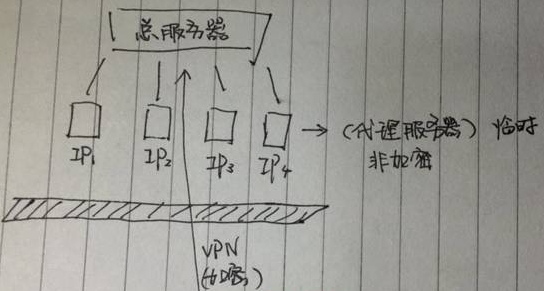 总服务器
IP1 IP2 IP3 IP4 → (代理服务器) 临时
非加密
VPN
(加密)